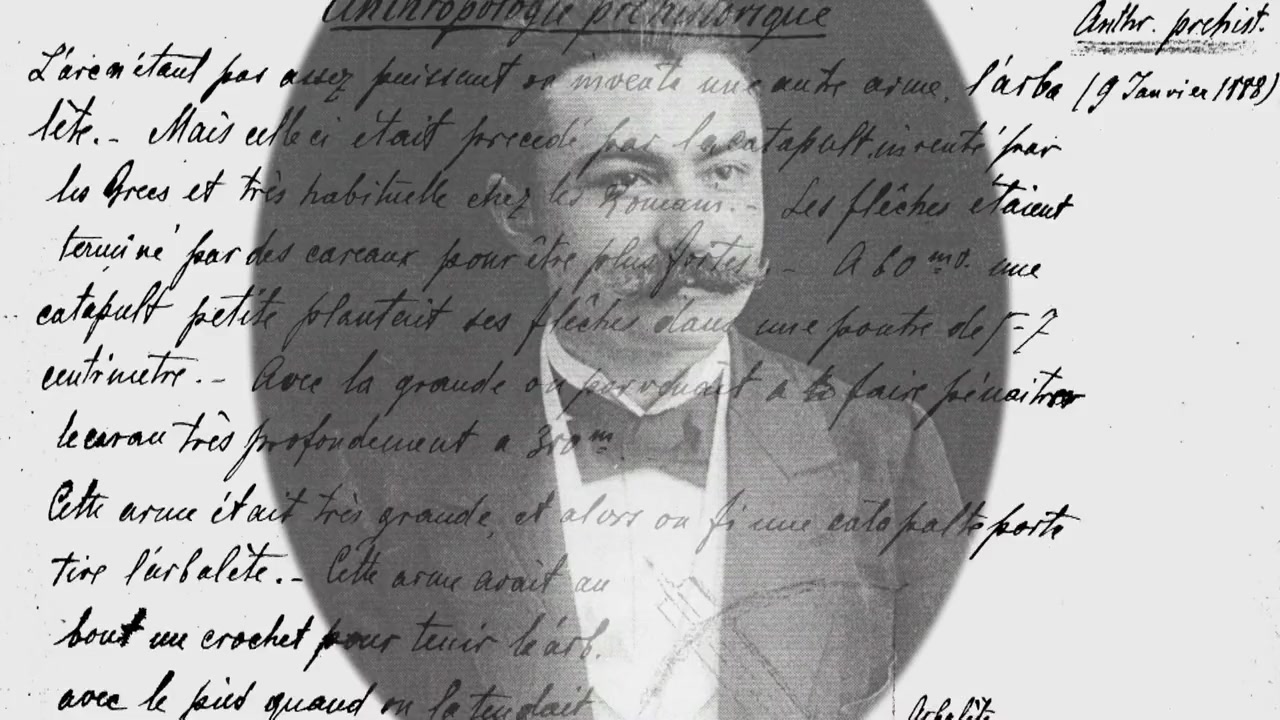 Anthropologie préhistorique
Anthr. prehist.
(9 Janvier 1888)
L'arc n'étant pas assez puissant on inventa une autre arme, l'arba
lète.- Mais celle ci était precedé par la catapult inventé par
les Grecs et très habituelle chez les Romains.- Les flêches étaient
terminé par des careaux pour être plus fortes.- A 60 mò. une
catapult petite plantait ses flêches dans une poutre de 5-7
centimetre.- Avec la grande on parvenait a faire pénaitrer
le carau très profondement a 300 m.
Cette arme était très grande, et alors on fi une catapalte porta
tive l'arbalète.- Cette arme avait au
bout un crochet pour tenir l'arb.
avec le pied quand on la tendait
Arbalète